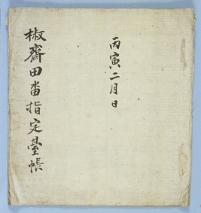 丙寅二月日
椒齋田畓指定臺帳